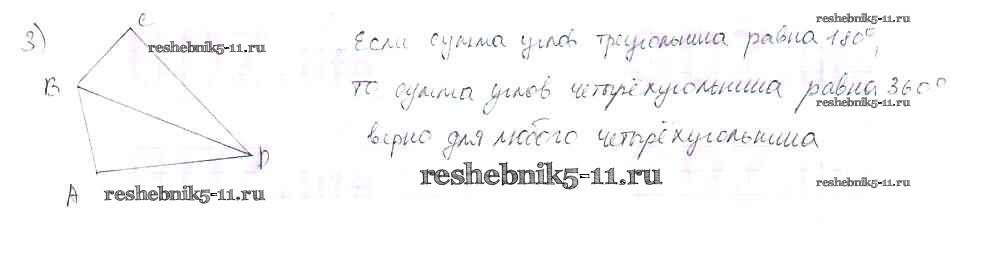 3)
C
B
A
D
Если сумма углов треугольника равна 180°,
то сумма углов четырёхугольника равна 360°
верно для любого четырёхугольника
reshebnik5-11.ru
reshebnik5-11.ru
reshebnik5-11.ru
reshebnik5-11.ru
reshebnik5-11.ru
reshebnik5-11.ru